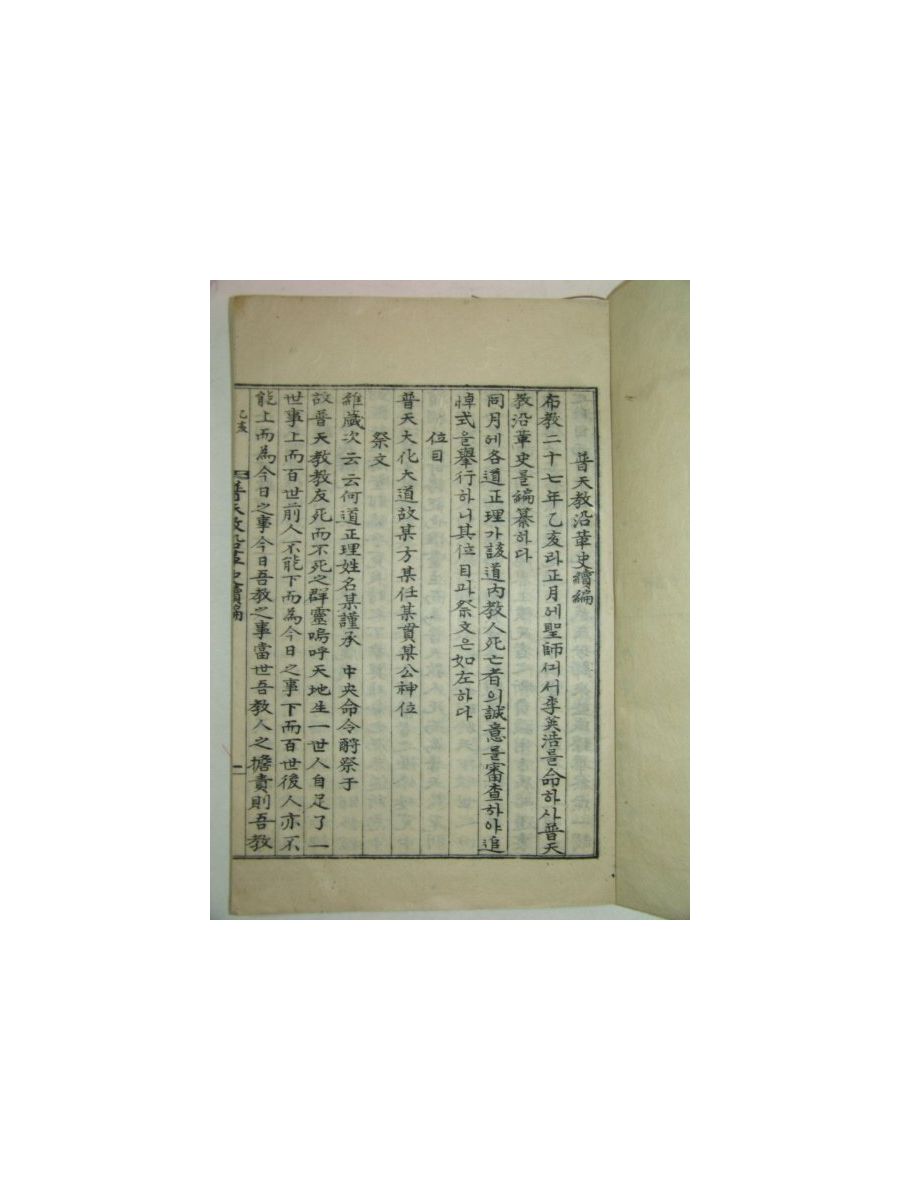 普天教沿革史續編
布教二十七年乙亥라正月에聖師여서李英浩를命하사普天
教沿革史를編纂하다
同月에各道正理가該道內教人死亡者의誠意를審查하야追
悼式을擧行하니其位目과祭文은如左하다
位目
普天大化大道故某方某任某貫某公神位
祭文
維歲次云云何道正理姓名某謹承 中央命令酹祭于
故普天教教友死而不死之群靈嗚呼天地生一世人自足了一
世事上而百世前人不能下而為今日之事下而百世後人亦不
能上而為今日之事今日吾教之事當世吾教人之擔責則吾教
乙亥
普天教沿革史續編
一